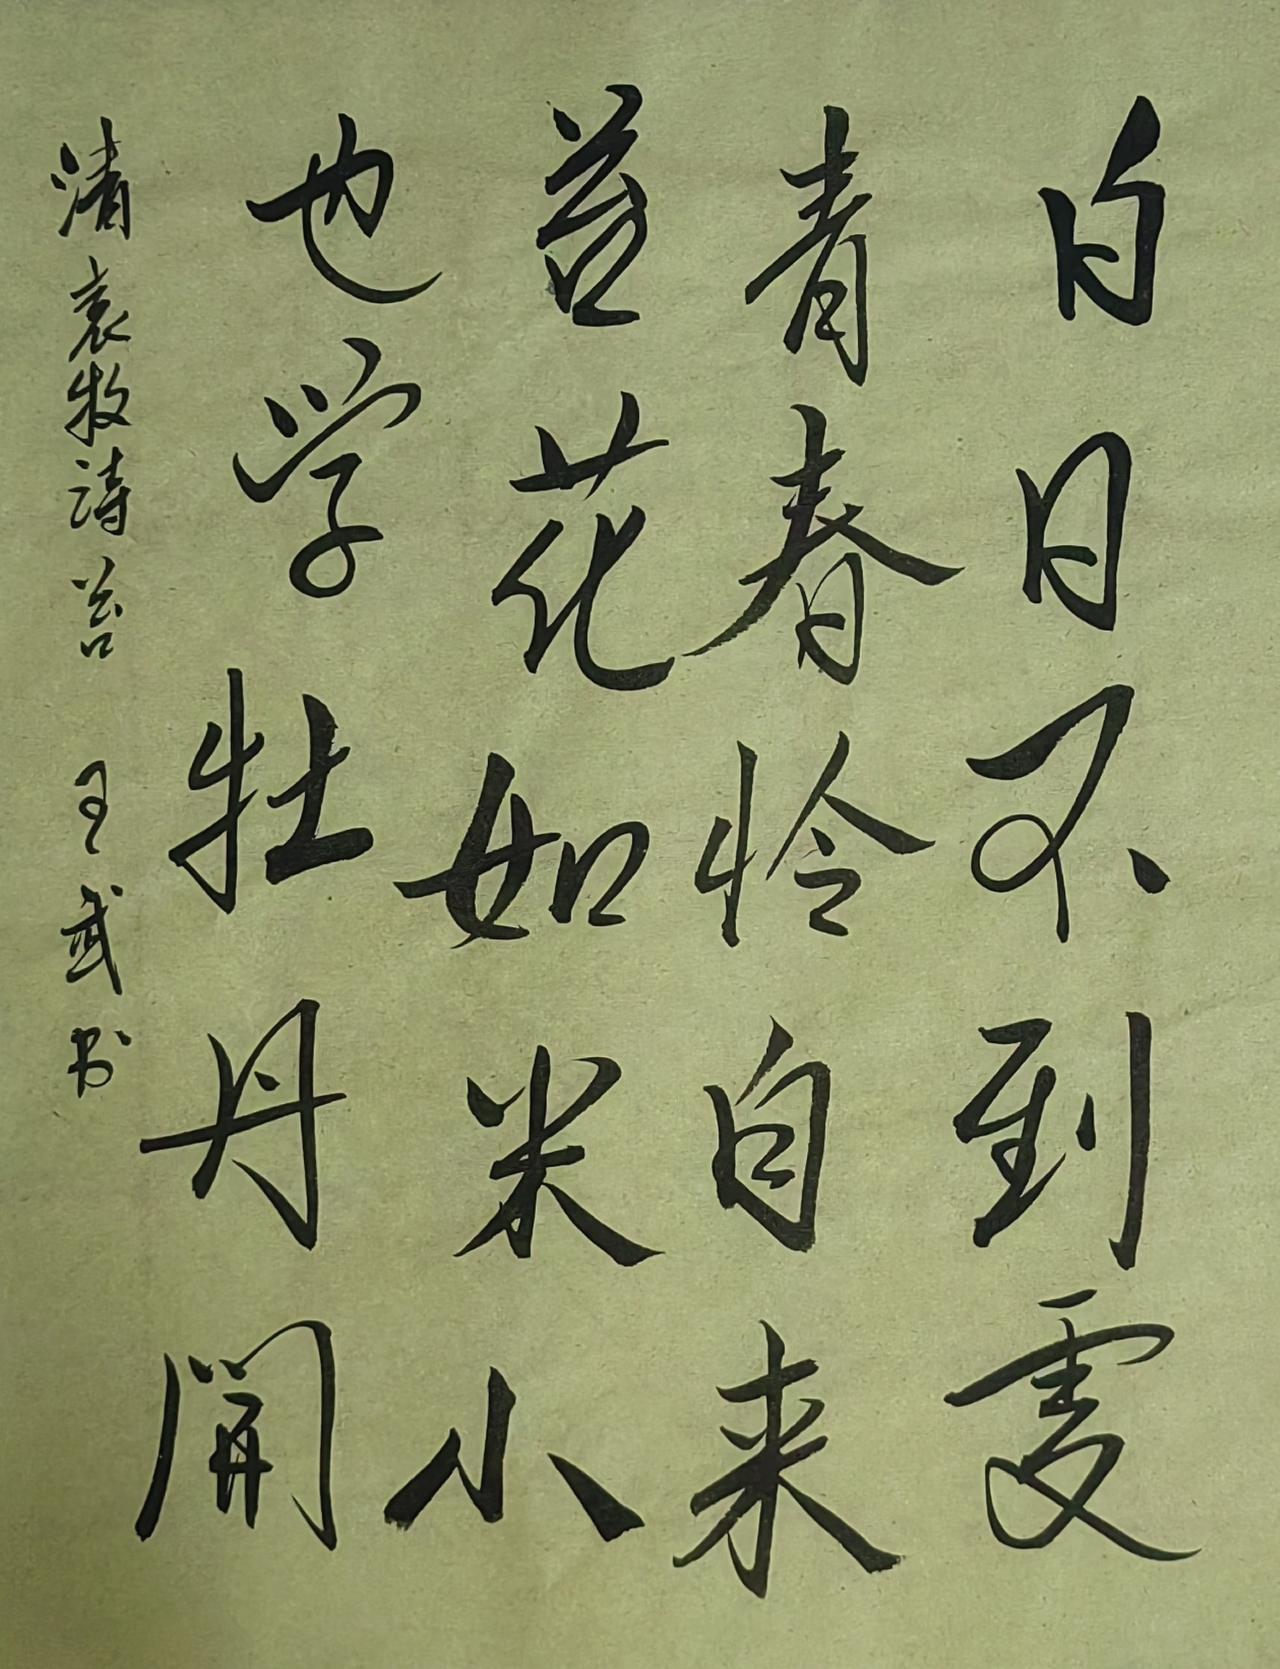 白日不到處
青春怜自来
苔花如米小
也学牡丹開
清袁牧诗苔 王武书